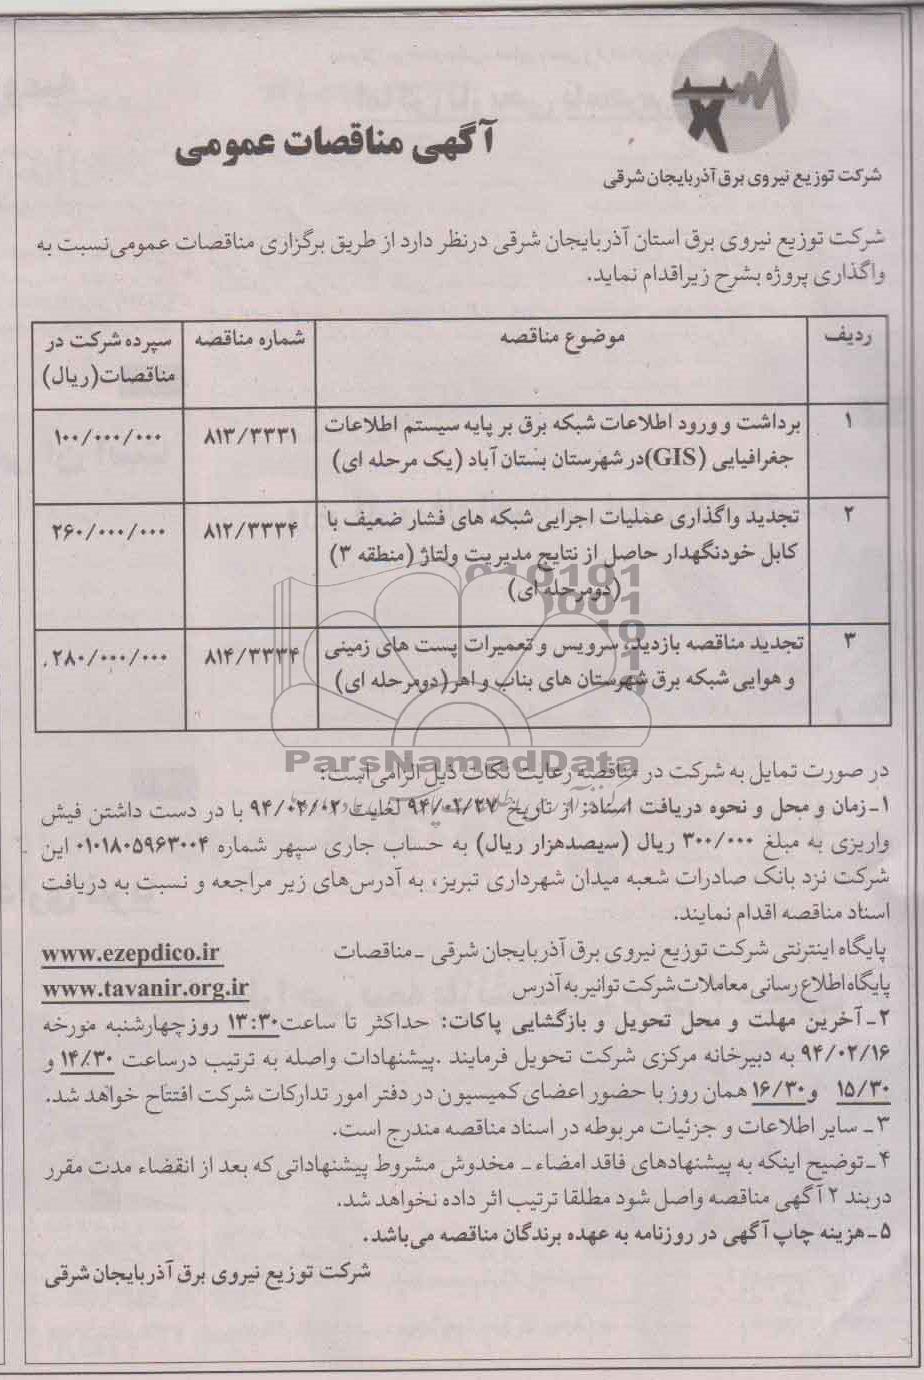 آگهی مناقصات عمومی
شرکت توزیع نیروی برق آذربایجان شرقی
شرکت توزیع نیروی برق استان آذربایجان شرقی درنظر دارد از طریق برگزاری مناقصات عمومی نسبت به
واگذاری پروژه بشرح زیر اقدام نماید.
ردیف موضوع مناقصه شماره مناقصه سپرده شرکت در
مناقصات(ریال)
۱ برداشت و ورود اطلاعات شبکه برق بر پایه سیستم اطلاعات ۸۱۳/۳۳۳۱ ۱۰۰/۰۰۰/۰۰۰
جغرافیایی (GIS)در شهرستان بستان آباد (یک مرحله ای)
۲ تجدید واگذاری عملیات اجرایی شبکه های فشار ضعیف با ۸۱۲/۳۳۳۴ ۲۶۰/۰۰۰/۰۰۰
کابل خودنگهدار حاصل از نتایج مدیریت ولتاژ (منطقه ۳)
(دومرحله ای)
۳ تجدید مناقصه بازدید، سرویس و تعمیرات پست های زمینی ۸۱۴/۳۳۳۴ ۲۸۰/۰۰۰/۰۰۰
و هوایی شبکه برق شهرستان های بناب و اهر(دومرحله ای)
ParsNamadData
در صورت تمایل به شرکت در مناقصه رعایت نکات ذیل الزامی است:
۱ـ زمان و محل و نحوه دریافت اسناد: از تاریخ لغایت با در دست داشتن فیش
واریزی به مبلغ ۳۰۰/۰۰۰ ریال (سیصدهزار ریال) به حساب جاری سپهر شماره ۰۱۰۱۸۰۵۹۶۳۰۰۴ این
شرکت نزد بانک صادرات شعبه میدان شهرداری تبریز، به آدرس‌های زیر مراجعه و نسبت به دریافت
اسناد مناقصه اقدام نمایند.
پایگاه اینترنتی شرکت توزیع نیروی برق آذربایجان شرقی ـ مناقصات www.ezepdico.ir
پایگاه اطلاع رسانی معاملات شرکت توانیر به آدرس www.tavanir.org.ir
۲ـ آخرین مهلت و محل تحویل و بازگشایی پاکات: حداکثر تا ساعت ۱۳:۳۰ روز چهارشنبه مورخه
۹۴/۰۲/۱۶ به دبیرخانه مرکزی شرکت تحویل فرمایند .پیشنهادات واصله به ترتیب درساعت ۱۴/۳۰ و
۱۵/۳۰ و ۱۶/۳۰ همان روز با حضور اعضای کمیسیون در دفتر امور تدارکات شرکت افتتاح خواهد شد.
۳ـ سایر اطلاعات و جزئیات مربوطه در اسناد مناقصه مندرج است.
۴ـ توضیح اینکه به پیشنهادهای فاقد امضاء ـ مخدوش مشروط پیشنهاداتی که بعد از انقضاء مدت مقرر
دربند ۲ آگهی مناقصه واصل شود مطلقا ترتیب اثر داده نخواهد شد.
۵ـ هزینه چاپ آگهی در روزنامه به عهده برندگان مناقصه می‌باشد.
شرکت توزیع نیروی برق آذربایجان شرقی